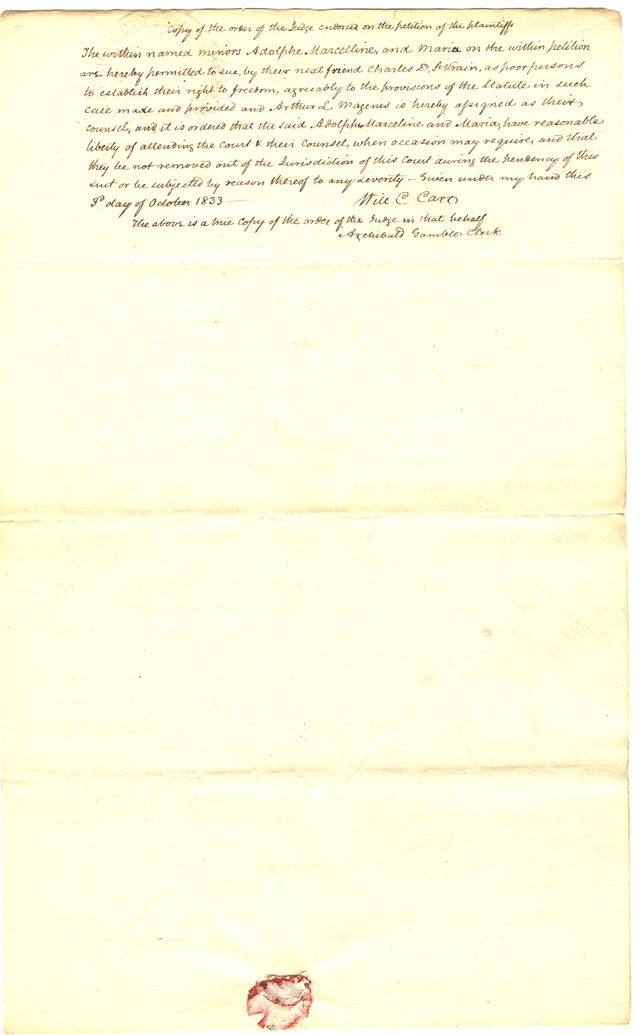 Copy of the order of the Judge endorsed on the petition of the plaintiffs
The within named minors Adolphe Marcelline, and Maria on the within petition
are hereby permitted to sue, by their next friend Charles D. St Vrain, as poor persons
to establish their right to freedom, agreeably to the provisions of the Statute in such
case made and provided and Arthur L. Magenis is hereby assigned as their
counsel, and it is ordered that the said Adolphe Marceline and Maria, have reasonable
liberty of attending the Court & their Counsel, when occasion may require, and that
they be not removed out of the Jurisdiction of this Court during the pendency of this
suit or be subjected by reason thereof to any severity — Given under my hand this
3d day of October 1833 — Will C Carr
The above is a true Copy of the order of the Judge in that behalf
Archibald Gamble Clerk